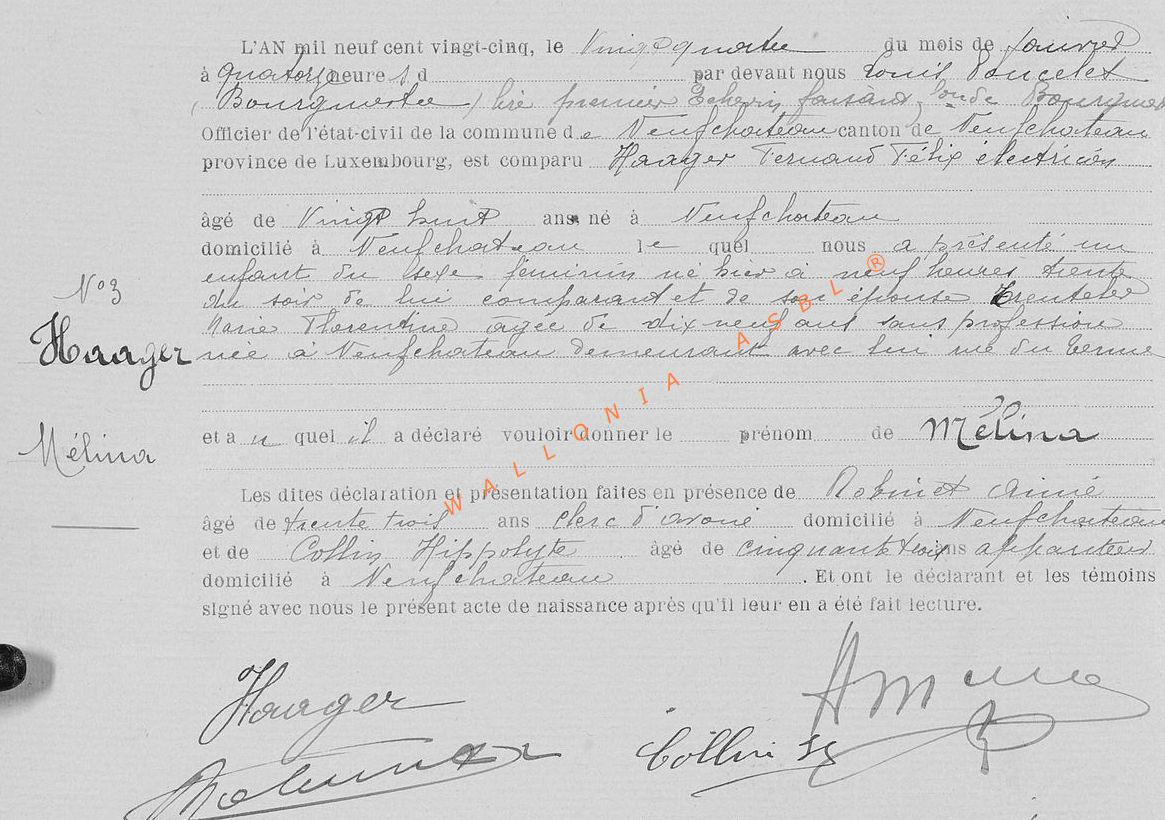 L'AN mil neuf cent vingt-cinq, le Vingt quatre du mois de Janvier
à quatorze heures d par devant nous Louis Poncelet
(Bourgmestre) lire premier Echevin faisant fonc de Bourgmest
Officier de l'état-civil de la commune de Neufchateau canton de Neufchateau
province de Luxembourg, est comparu Haager Fernand Félix électricien
âgé de Vingt huit ans né à Neufchateau
domicilié à Neufchateau lequel nous a présenté un
enfant du sexe féminin né hier à neuf heures trente
du soir de lui comparant et de son épouse
N°3
Marie Florentine agée de dix neuf ans sans profession
Haager
née à Neufchateau demeurant avec lui rue du Terme
et au quel il a déclaré vouloir donner le prénom de Mélina
Mélina
Les dites déclaration et présentation faites en présence de Robinet Aimé
âgé de trente trois ans clerc d'avoué domicilié à Neufchateau
et de Collin Hippolyte âgé de cinquante trois ans appariteur
domicilié à Neufchateau. Et ont le déclarant et les témoins
signé avec nous le présent acte de naissance après qu'il leur en a été fait lecture.
Haager
Robinet
Collin
WALLONIA ASBL ®